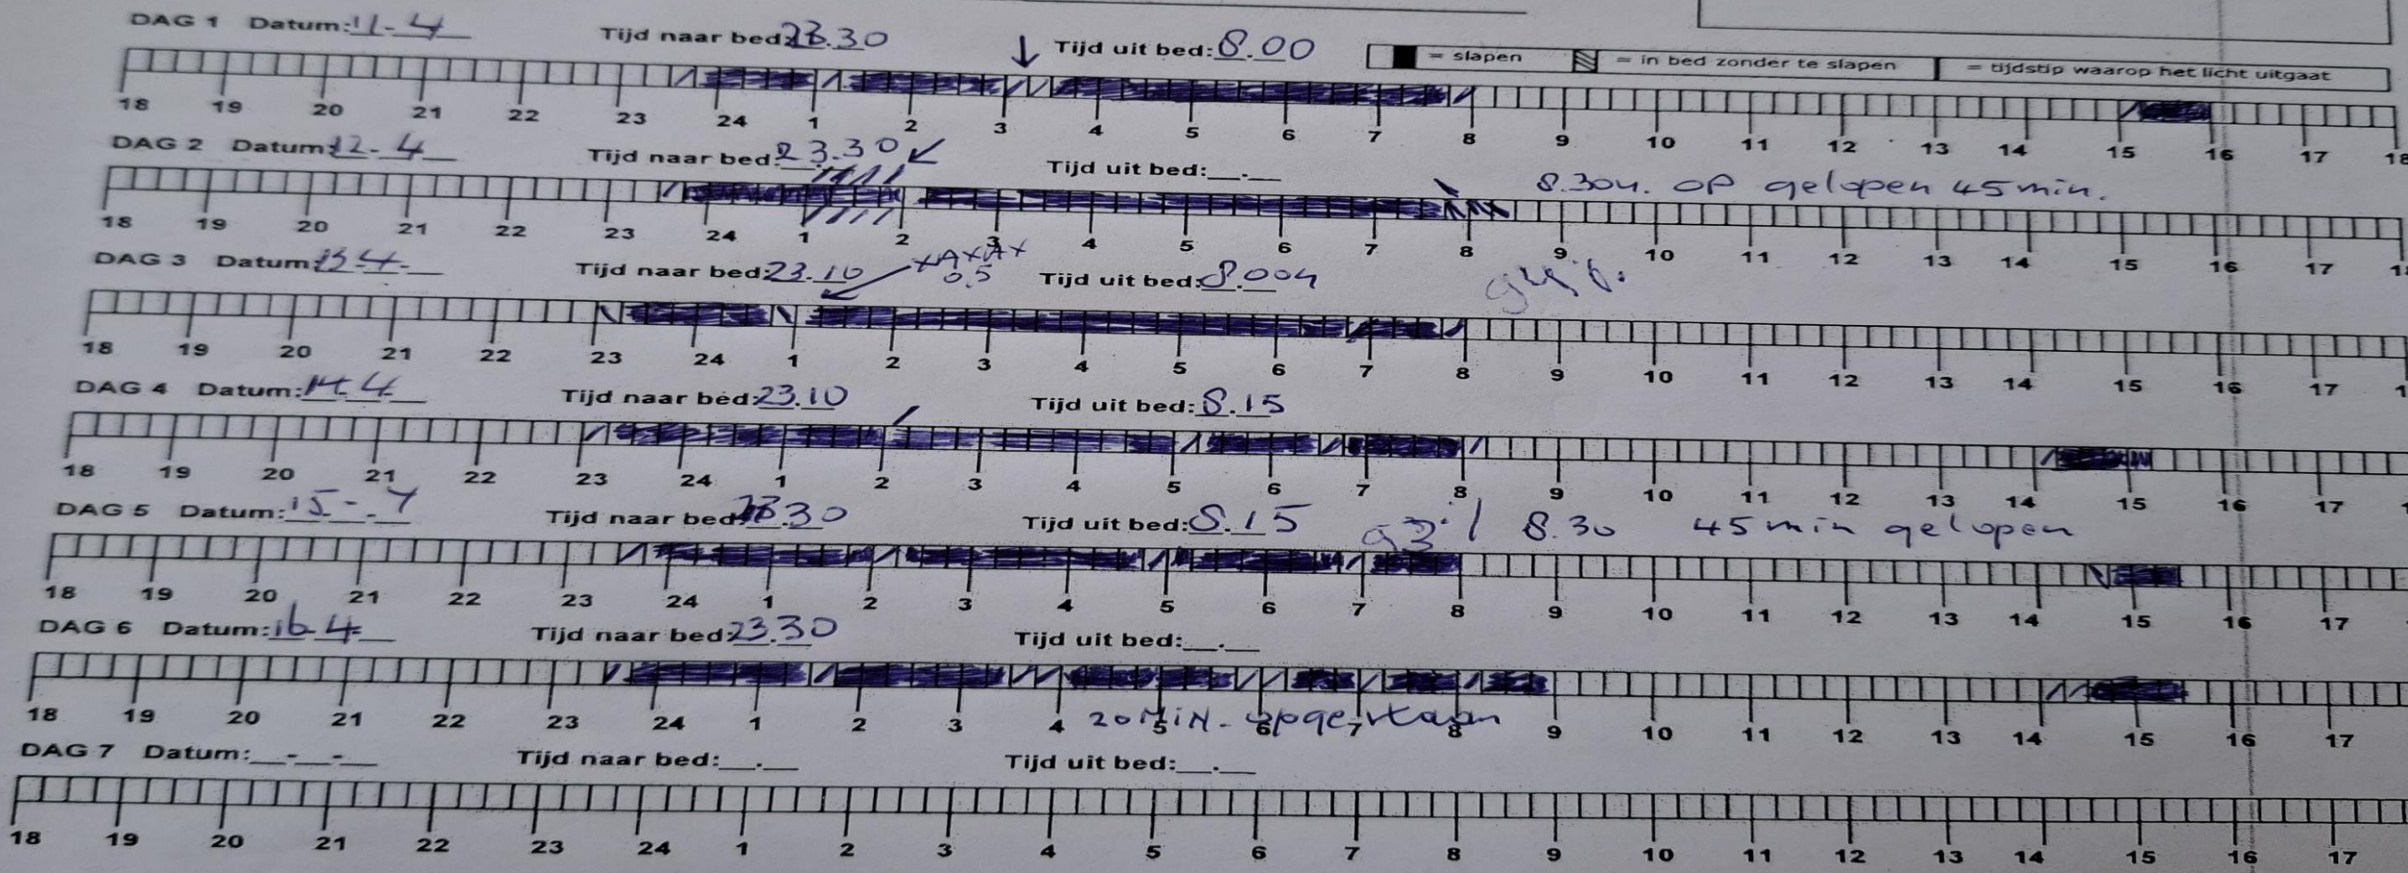 DAG 1 Datum: 11-4 Tijd naar bed: 23.30 Tijd uit bed: 8.00 = slapen = in bed zonder te slapen = tijdstip waarop het licht uitgaat
18 19 20 21 22 23 24 1 2 3 4 5 6 7 8 9 10 11 12 13 14 15 16 17 18
DAG 2 Datum: 12-4 Tijd naar bed: 23.30 Tijd uit bed:__.__ 8.30u. op gelopen 45 min.
18 19 20 21 22 23 24 1 2 3 4 5 6 7 8 9 10 11 12 13 14 15 16 17
DAG 3 Datum: 13-4- Tijd naar bed: 23.10 0.5 Tijd uit bed: 8.00u
18 19 20 21 22 23 24 1 2 3 4 5 6 7 8 9 10 11 12 13 14 15 16 17
DAG 4 Datum: 14.4 Tijd naar bed: 23.10 Tijd uit bed: 8.15
18 19 20 21 22 23 24 1 2 3 4 5 6 7 8 9 10 11 12 13 14 15 16 17
DAG 5 Datum: 15-4 Tijd naar bed: 23.30 Tijd uit bed: 8.15 8.30 45 min gelopen
18 19 20 21 22 23 24 1 2 3 4 5 6 7 8 9 10 11 12 13 14 15 16 17
DAG 6 Datum: 16-4 Tijd naar bed: 23.30 Tijd uit bed:__.__
18 19 20 21 22 23 24 1 2 3 4 5 6 7 8 9 10 11 12 13 14 15 16 17
20 MIN- opgestaan
DAG 7 Datum:__-__-__ Tijd naar bed:__.__ Tijd uit bed:__.__
18 19 20 21 22 23 24 1 2 3 4 5 6 7 8 9 10 11 12 13 14 15 16 17